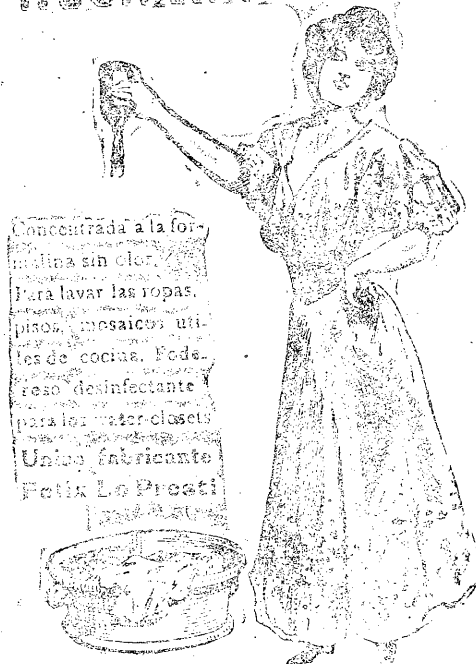 Concentrada a la for-
malina sin olor.
Para lavar las ropas,
pisos, mosaicos úti-
les de cocina. Pode-
roso desinfectante
para los water-closets
Unico fabricante
Felix Lo Presti